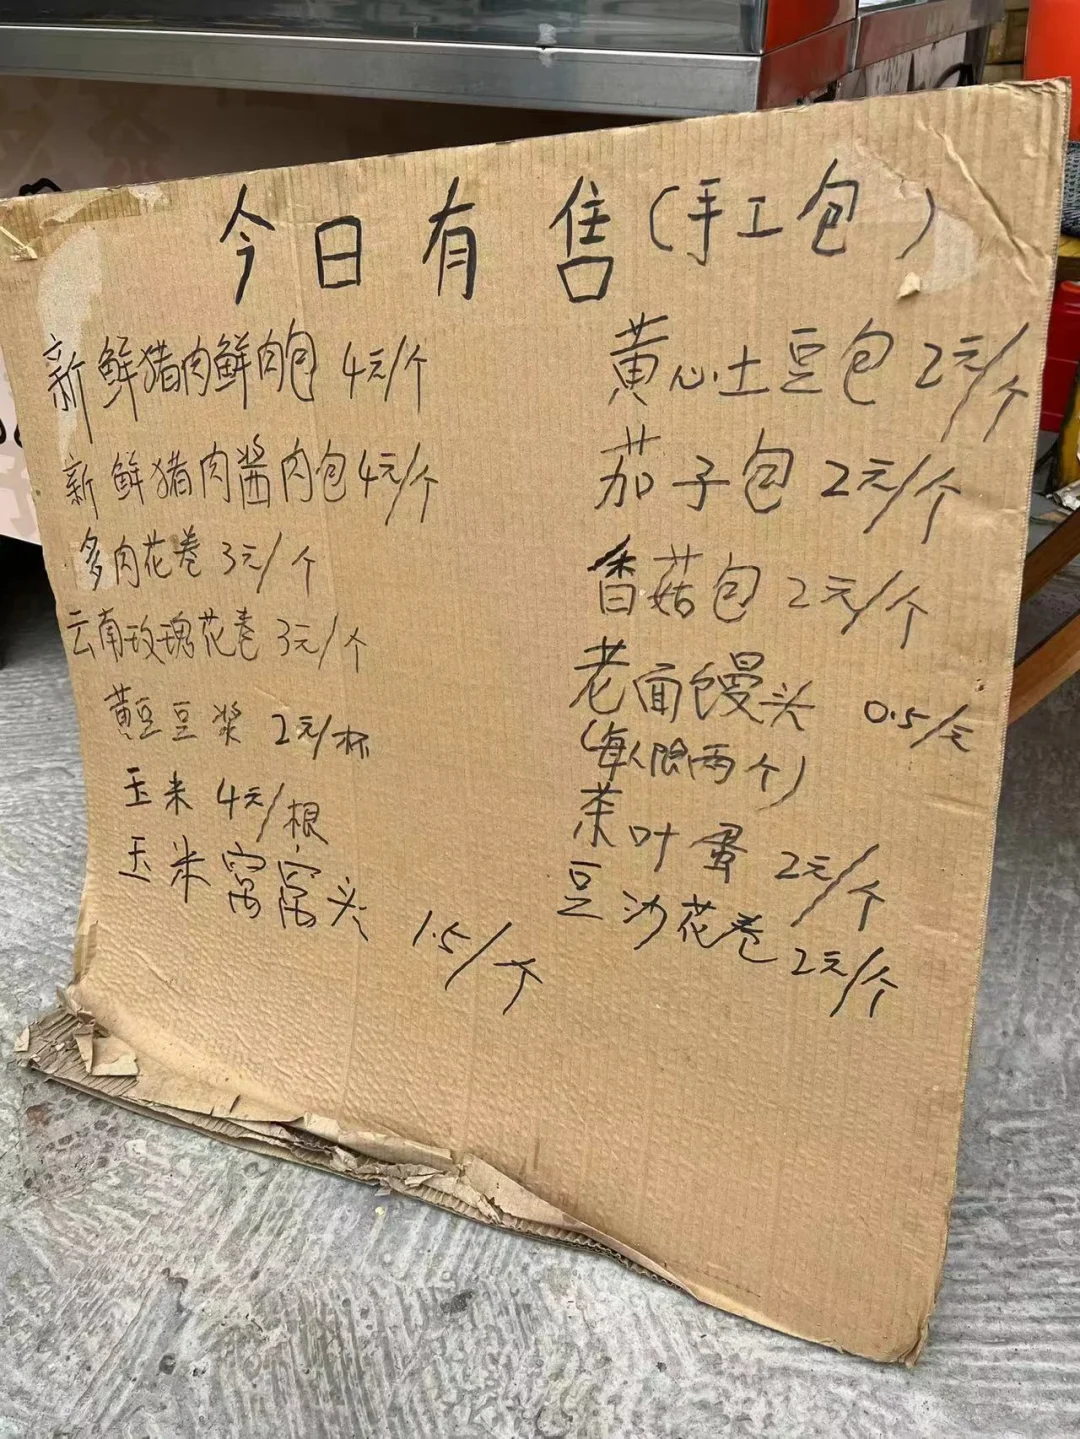 今日有售(手工包)
新鲜猪肉鲜肉包 4元/个
新鲜猪肉酱肉包 4元/个
多肉花卷 3元/个
云南玫瑰花卷 3元/个
黄豆豆浆 2元/杯
玉米 4元/根
玉米窝窝头 1.5/个
黄心土豆包 2元/个
茄子包 2元/个
香菇包 2元/个
老面馒头 0.5/元
(每人限两个)
茶叶蛋 2元/个
豆沙花卷 2元/个